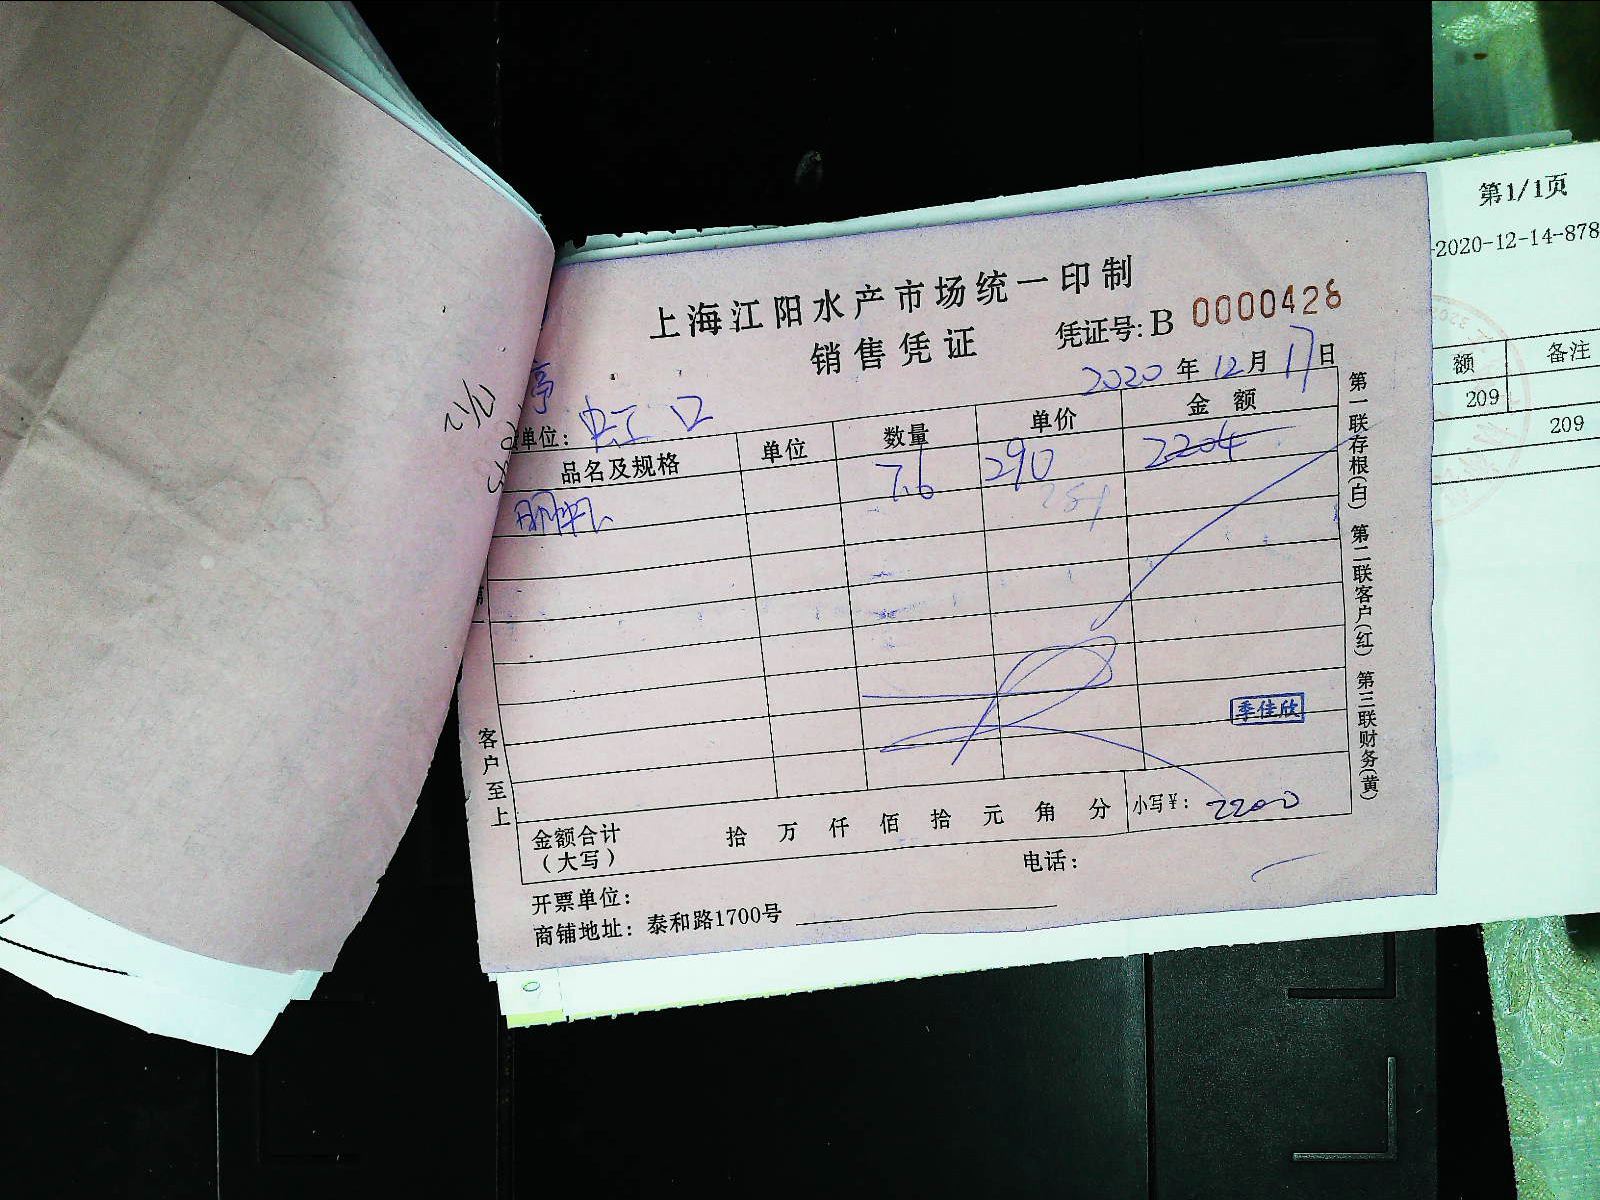 第1/1页
-2020-12-14-878
上海江阳水产市场统一印制
销售凭证 凭证号:B 0000428
2020年12月17日
单位: 虹口
品名及规格 单位 数量 单价 金额
7.6 290 2204
251
额 备注
209
209
第一联存根(白) 第二联客户(红) 第三联财务(黄)
客户至上
季佳欣
金额合计(大写) 拾 万 仟 佰 拾 元 角 分 小写¥: 2200
开票单位: 电话:
商铺地址: 泰和路1700号